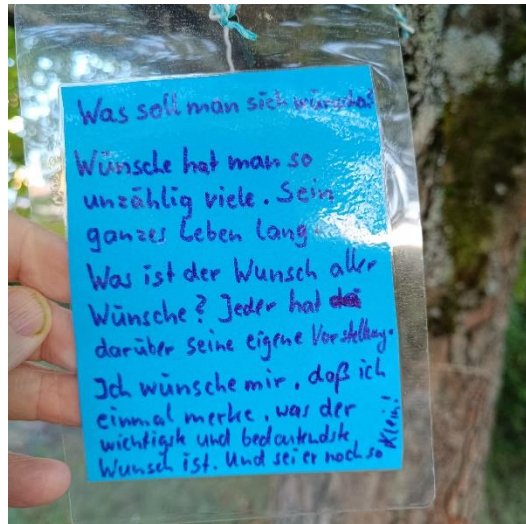 Was soll man sich wünschen?
Wünsche hat man so
unzählig viele. Sein
ganzes Leben lang.
Was ist der Wunsch aller
Wünsche? Jeder hat
darüber seine eigene Vorstellung.
Ich wünsche mir, daß ich
einmal merke, was der
wichtigste und bedeutendste
Wunsch ist. Und sei er noch so
Klein!